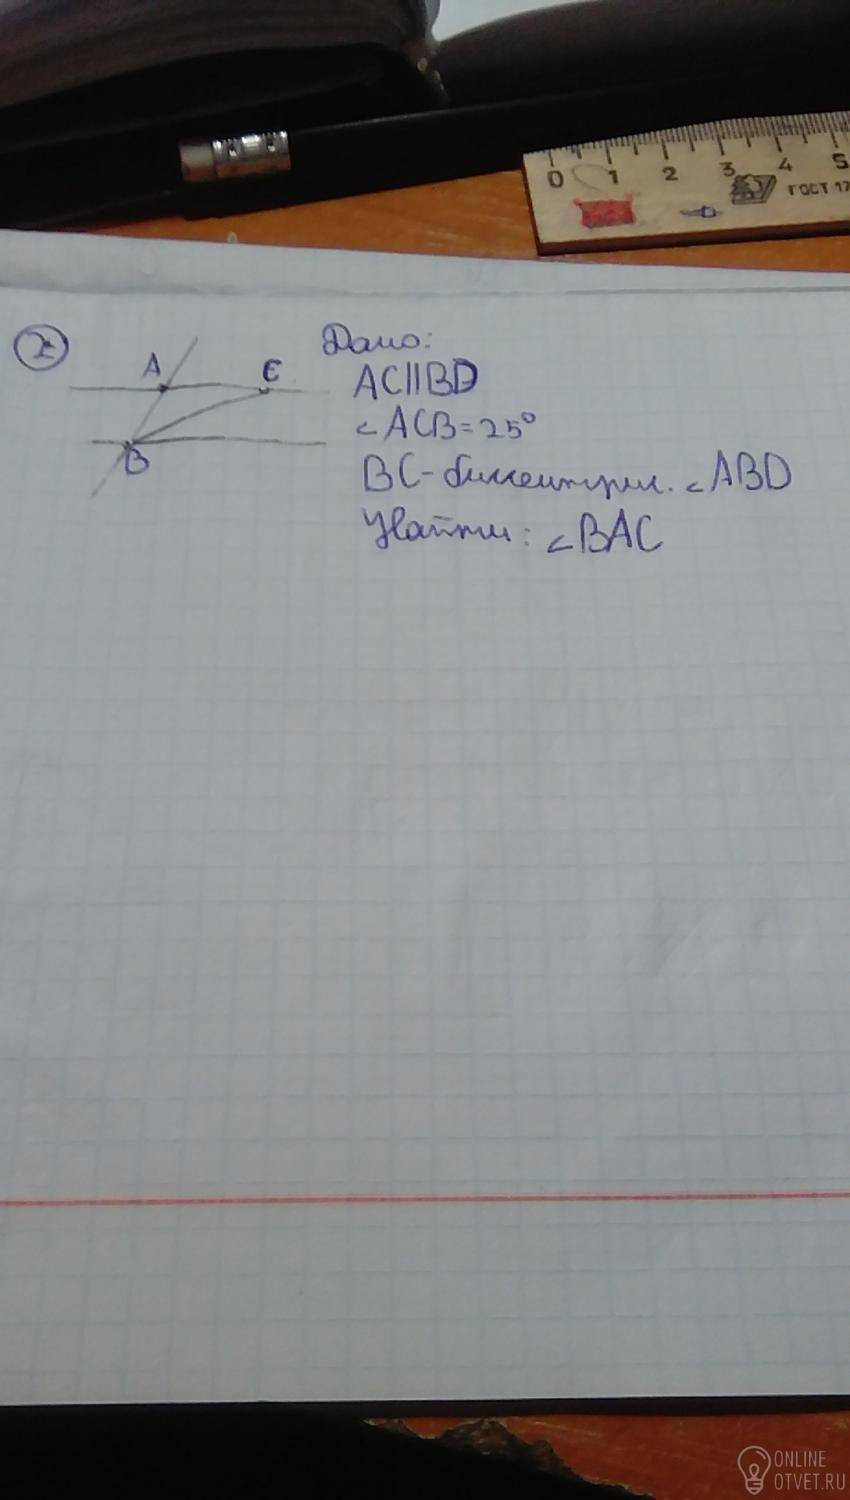 0 1 2 3 4 5
ГОСТ 17
2
A C
B
Дано:
AC||BD
∠ACB=25°
BC-биссектрис. ∠ABD
Найти: ∠BAC
ONLINE
OTVET.RU